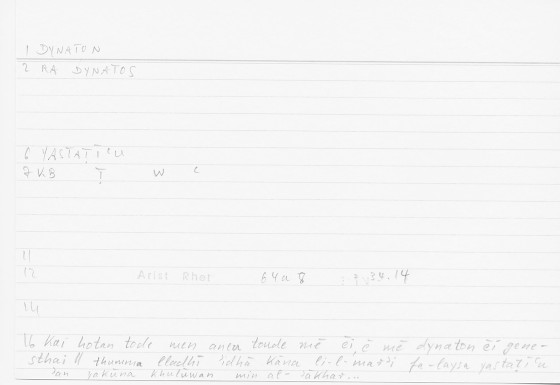 1 DYNATON
2 AA DYNATOS
6 YASTAṬĪʿU
7 VB Ṭ W ʿ
11
12 Arist Rhet 64a8 : 34.14
14
16 Kai hotan tode men aneu toude mē ēi, ē mē dynaton ēi gene-
sthai // thumma lladhī ʾidhā kāna li-l-marʾi fa-laysa yastaṭīʿu
ʾan yakūna khuluwan min al-ʾākhar...